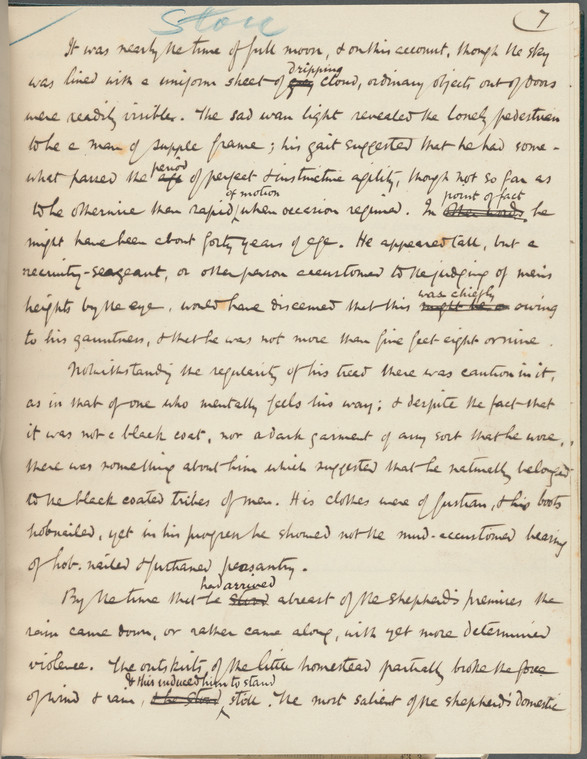 Stone
7
It was nearly the time of full moon, & on this account, though the sky
dripping
was lined with a uniform sheet of grey cloud, ordinary objects out of doors
were readily visible. The sad wan light revealed the lonely pedestrian
to be a man of supple frame; his gait suggested that he had some-
period
what passed the age of perfect & instinctive agility, though not so far as
of motion point of fact
to be otherwise than rapid when occasion required. In other words he
might have been about forty years of age. He appeared tall, but a
recruiting-seargeant, or other person accustomed to the judging of men's
was chiefly
heights by the eye, would have discerned that this might be owing
to his gauntness, & that he was not more than five feet eight or nine.
Notwithstanding the regularity of his tread there was caution in it,
as in that of one who mentally feels his way; & despite the fact that
it was not a black coat, nor a dark garment of any sort that he wore,
there was something about him which suggested that he naturally belonged
to the black coated tribes of men. His clothes were of fustian, & his boots
hobnailed, yet in his progress he showed not the mud-accustomed bearing
of hob-nailed & fustianed peasantry.
had arrived
By the time that he stood abreast of the shepherd's premises the
rain came down, or rather came along, with yet more determined
violence. The outskirts of the little homestead partially broke the force
& this induced him to stand
of wind & rain, & he stood still. The most salient of the shepherd's domestic